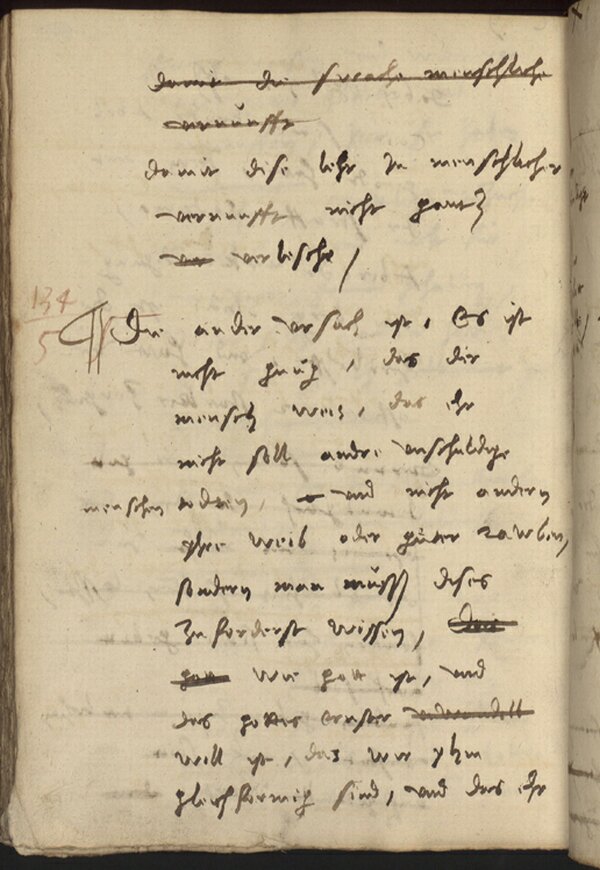 damit die sprache menschliche
vernunfft
damit dise lehr In menschlicher
vernunfft nicht gantz
verlesche /
134
5
Die ander ursach ist, Es ist
nicht gnug, das der
mensch weis, das ehr
nicht soll andre unschuldige
menschen todten, und nicht andern
yhre weib oder güter rawben,
sondern man müss dises
Zu forderst wissen, Das
gott wie gott ist, und
das gottes ernster
will ist, das wir yhm
gleichformig sind, und das ehr